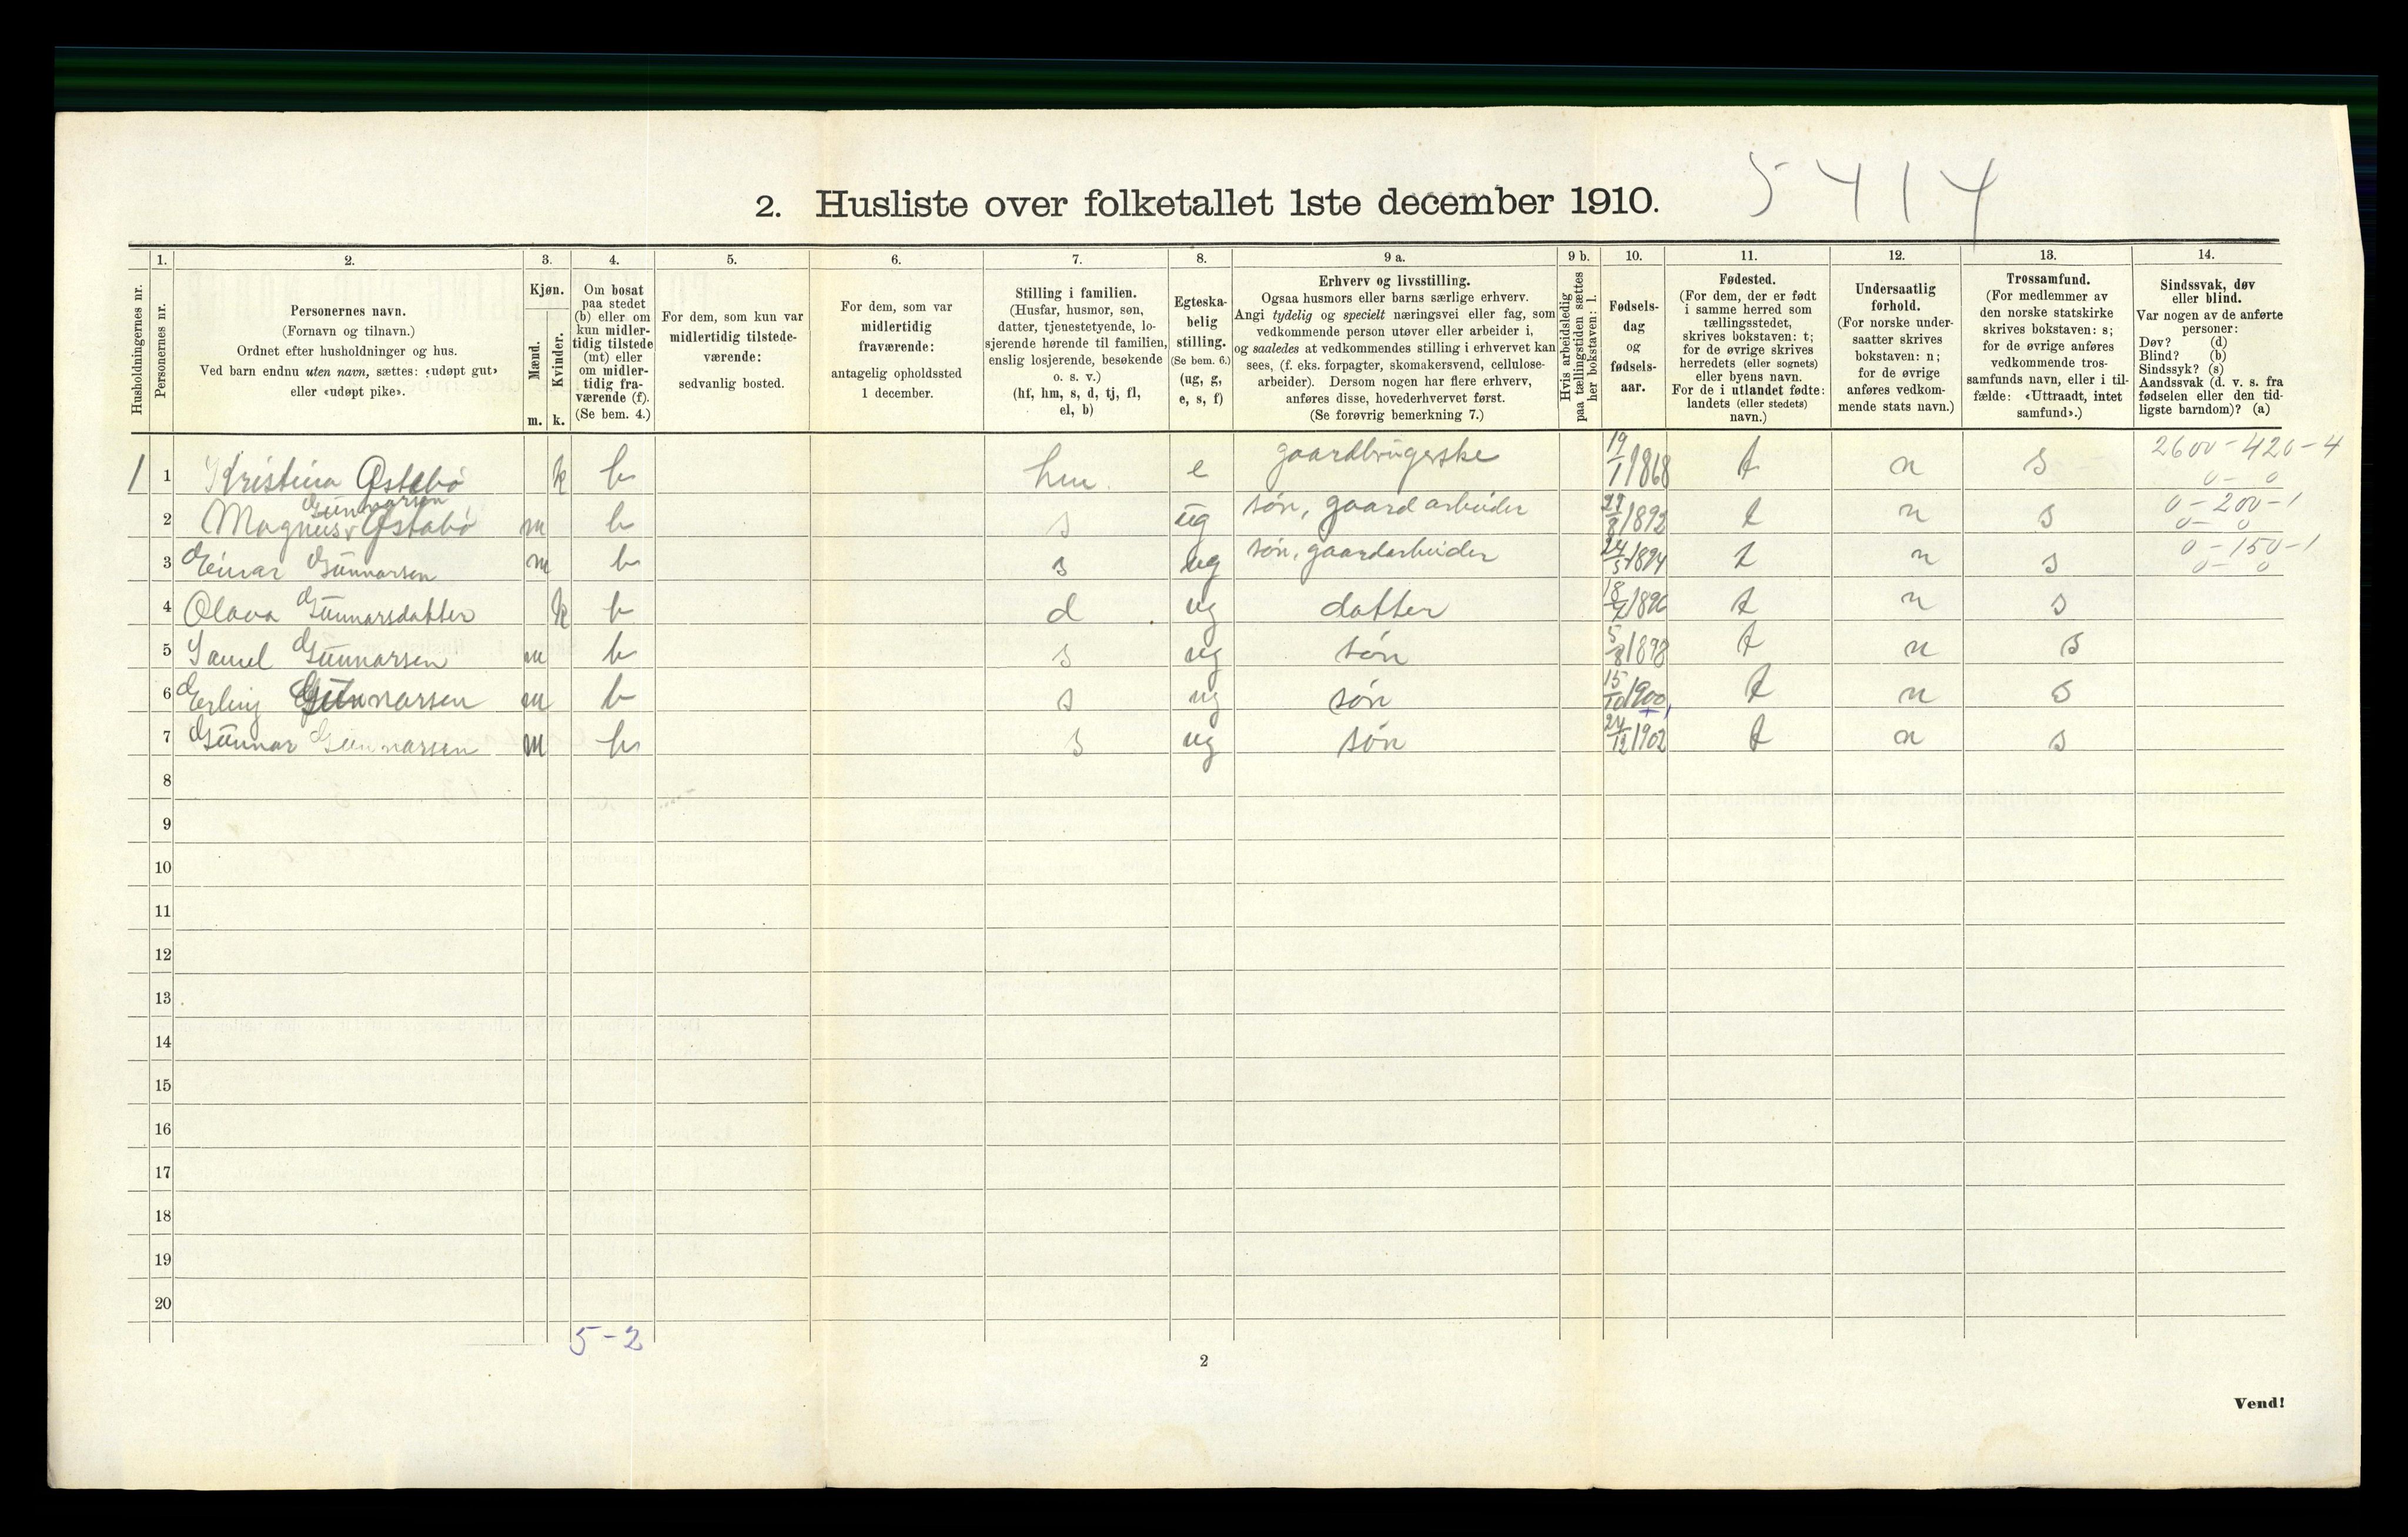 5414
2. Husliste over folketallet 1ste december 1910.
1. 2. 3. 4. 5. 6. 7. 8. 9 a. 9 b. 10. 11. 12. 13. 14.
Husholdningernes nr.
Personernes nr.
Personernes navn.
(Fornavn og tilnavn.)
Ordnet efter husholdninger og hus.
Ved barn endnu uten navn, sættes: «udøpt gut»
eller «udøpt pike».
Kjøn.
Mænd.
Kvinder.
m. k.
Om bosat
paa stedet
(b) eller om
kun midler-
tidig tilstede
(mt) eller
om midler-
tidig fra-
værende (f).
(Se bem. 4.)
For dem, som kun var
midlertidig tilstede-
værende:
sedvanlig bosted.
For dem, som var
midlertidig
fraværende:
antagelig opholdssted
1 december.
Stilling i familien.
(Husfar, husmor, søn,
datter, tjenestetyende, lo-
sjerende hørende til familien,
enslig losjerende, besøkende
o. s. v.)
(hf, hm, s, d, tj, fl,
el, b)
Egteska-
belig
stilling.
(Se bem. 6.)
(ug, g,
e, s, f)
Erhverv og livsstilling.
Ogsaa husmors eller barns særlige erhverv.
Angi tydelig og specielt næringsvei eller fag, som
vedkommende person utøver eller arbeider i,
og saaledes at vedkommendes stilling i erhvervet kan
sees, (f. eks. forpagter, skomakersvend, cellulose-
arbeider). Dersom nogen har flere erhverv,
anføres disse, hovederhvervet først.
(Se forøvrig bemerkning 7.)
Hvis arbeidsledig
paa tællingstiden sættes
her bokstaven: l.
Fødsels-
dag
og
fødsels-
aar.
Fødested.
(For dem, der er født
i samme herred som
tællingsstedet,
skrives bokstaven: t;
for de øvrige skrives
herredets (eller sognets)
eller byens navn.
For de i utlandet fødte:
landets (eller stedets)
navn.)
Undersaatlig
forhold.
(For norske under-
saatter skrives
bokstaven: n;
for de øvrige
anføres vedkom-
mende stats navn.)
Trossamfund.
(For medlemmer av
den norske statskirke
skrives bokstaven: s;
for de øvrige anføres
vedkommende tros-
samfunds navn, eller i til-
fælde: «Uttraadt, intet
samfund».)
Sindssvak, døv
eller blind.
Var nogen av de anførte
personer:
Døv? (d)
Blind? (b)
Sindssyk? (s)
Aandssvak (d. v. s. fra
fødselen eller den tid-
ligste barndom)? (a)
1 1 Kristina Østebø k b hm e gaardbrugerske 19/1 1868 t n s 2600-420-4 0-0
Gunnarsen
2 Magnus Østabø m b s ug søn, gaardarbeider 8 1892 t n s 0-200-1 0-0
3 Einar Gunnarsen m b s ug søn, gaardarbeider 24/5 1894 t n s 0-150-1 0-0
4 Olava Gunnarsdatter k b d ug datter 18 1896 t n s
5 Samel Gunnarsen m b s ug søn 5/8 1898 t n s
6 Erling Gunnarsen m b s ug søn 15/10 1900 t n s
7 Gunnar Gunnarsen m b s ug søn 24/12 1902 t n s
8
9
10
11
12
13
14
15
16
17
18
19
20
5-2
2
Vend!